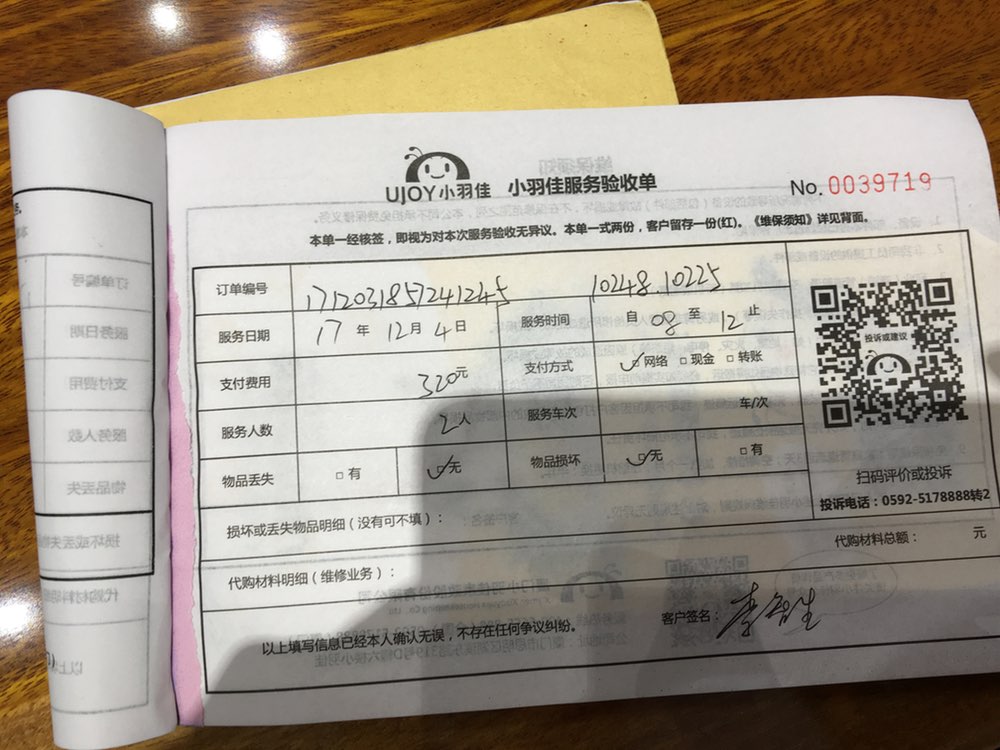 UJOY小羽佳 小羽佳服务验收单 No.0039719
本单一经核签，即视为对本次服务验收无异议。本单一式两份，客户留存一份(红)。《维保须知》详见背面。
订单编号 1712031857241245 10248.10225
服务日期 17 年 12 月 4 日 服务时间 自 08 至 12 止
支付费用 320元 支付方式 ☑网络 □现金 □转账
服务人数 2人 服务车次 车/次
物品丢失 □有 ☑无 物品损坏 ☑无 □有
投诉或建议
扫码评价或投诉
投诉电话：0592-5178888转2
损坏或丢失物品明细（没有可不填）：
代购材料明细（维修业务）： 代购材料总额： 元
以上填写信息已经本人确认无误，不存在任何争议纠纷。 客户签名：
订单编号
服务日期
支付费用
服务人数
物品丢失